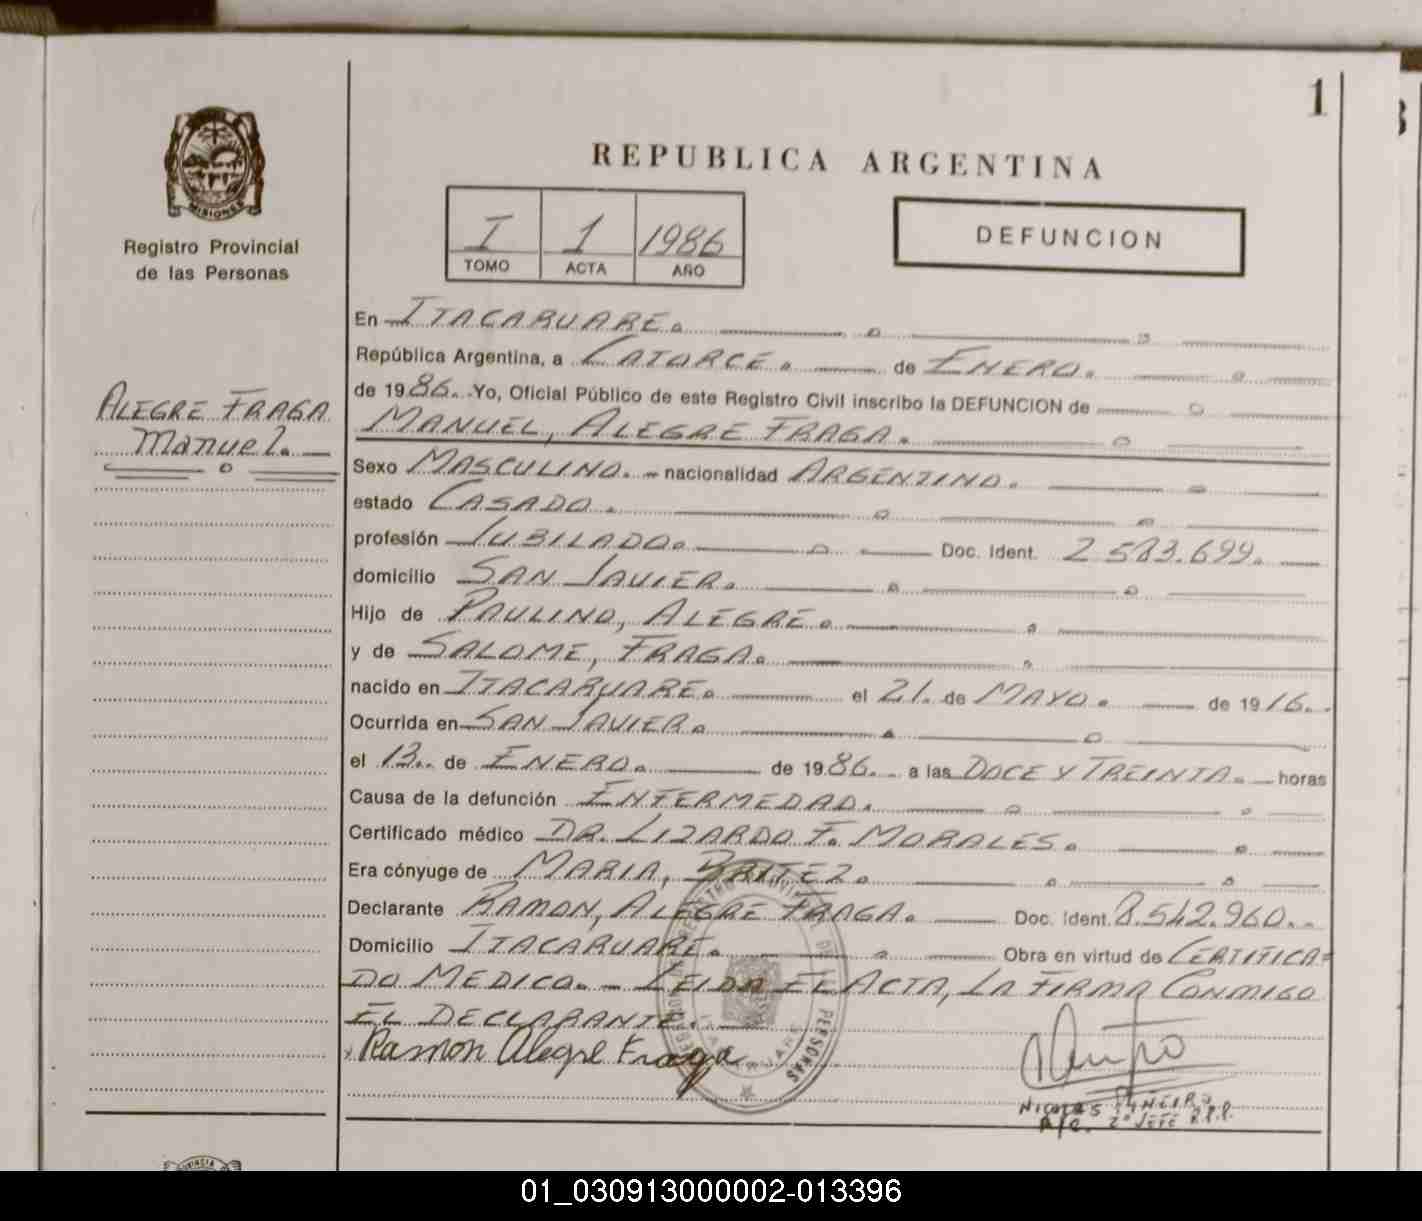 1
MISIONES
Registro Provincial
de las Personas
ALEGRE FRAGA
Manuel.
REPUBLICA ARGENTINA
I 1 1986
TOMO ACTA AÑO
DEFUNCION
En ITACARUARE.
República Argentina, a CATORCE. de ENERO.
de 1986. Yo, Oficial Público de este Registro Civil inscribo la DEFUNCION de
MANUEL, ALEGRE FRAGA.
Sexo MASCULINO. nacionalidad ARGENTINO.
estado CASADO.
profesión JUBILADO. Doc. Ident. 2.583.699.
domicilio SAN JAVIER.
Hijo de PAULINO, ALEGRE.
y de SALOME, FRAGA.
nacido en ITACARUARE. el 21. de MAYO. de 1916.
Ocurrida en SAN JAVIER.
el 13. de ENERO. de 1986. a las DOCE Y TREINTA. horas
Causa de la defunción ENFERMEDAD.
Certificado médico DR. LIZARDO F. MORALES.
Era cónyuge de MARIA, BRITEZ.
Declarante RAMON, ALEGRE FRAGA. Doc. Ident. 8.542.960.
Domicilio ITACARUARE. Obra en virtud de CERTIFICA=
DO MEDICO. - LEIDA EL ACTA, LA FIRMA CONMIGO
EL DECLARANTE.
Ramon Alegre Fraga
PERSONAS
Nicolas PIÑEIRO
A/C. 2° JEFE R.P.P.
01_030913000002-013396